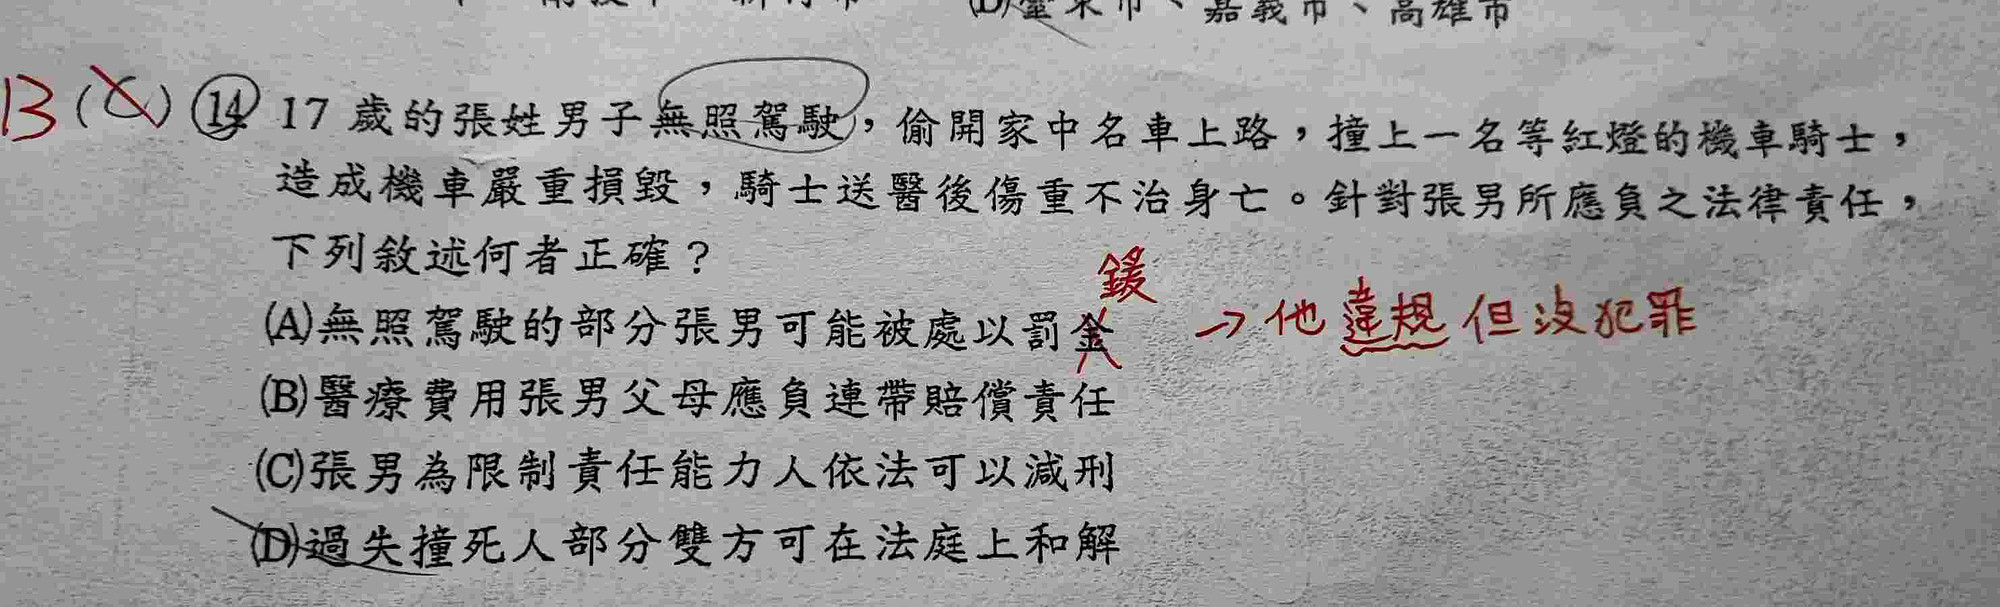 (D)臺東市、嘉義市、高雄市
B ( ) 14 17 歲的張姓男子無照駕駛，偷開家中名車上路，撞上一名等紅燈的機車騎士，
造成機車嚴重損毀，騎士送醫後傷重不治身亡。針對張男所應負之法律責任，
下列敘述何者正確？
鍰
(A)無照駕駛的部分張男可能被處以罰金 → 他違規但沒犯罪
(B)醫療費用張男父母應負連帶賠償責任
(C)張男為限制責任能力人依法可以減刑
(D)過失撞死人部分雙方可在法庭上和解